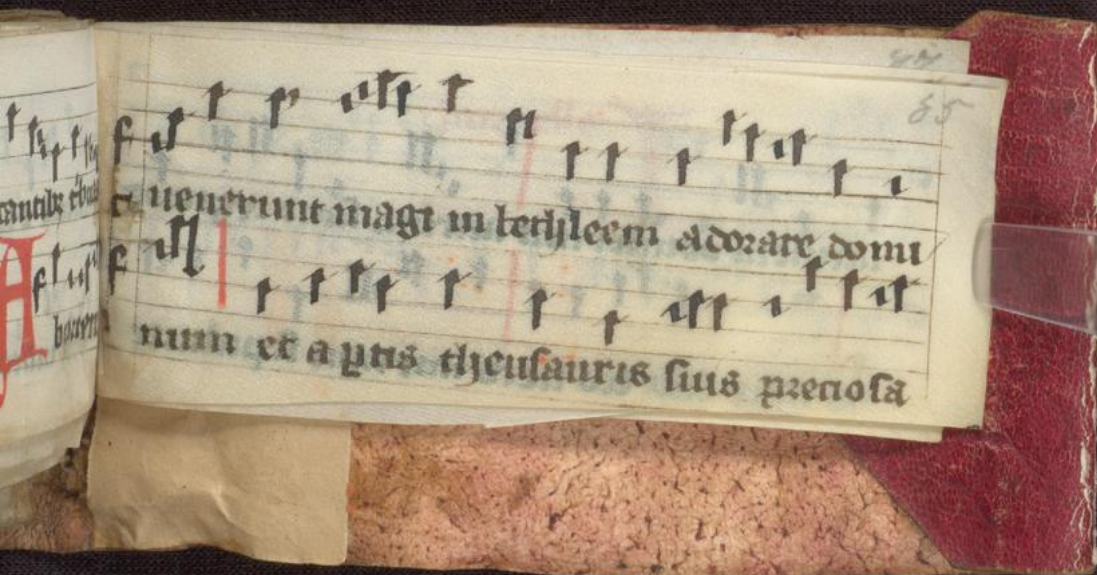 cantibz
uenerunt magi in bethleem adorare domi
num et a ꝑtis thesauris suis preciosa
65